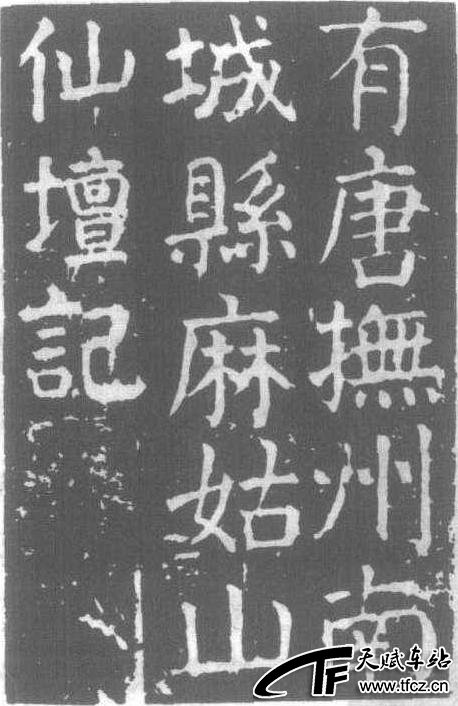 有唐撫州南
城縣麻姑山
仙壇記
天赋车站
www.tfcz.cn